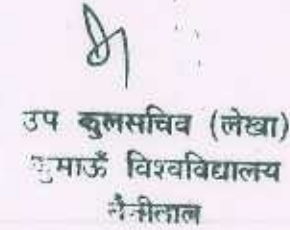 उप कुलसचिव (लेखा)
कुमाऊँ विश्वविद्यालय
नैनीताल